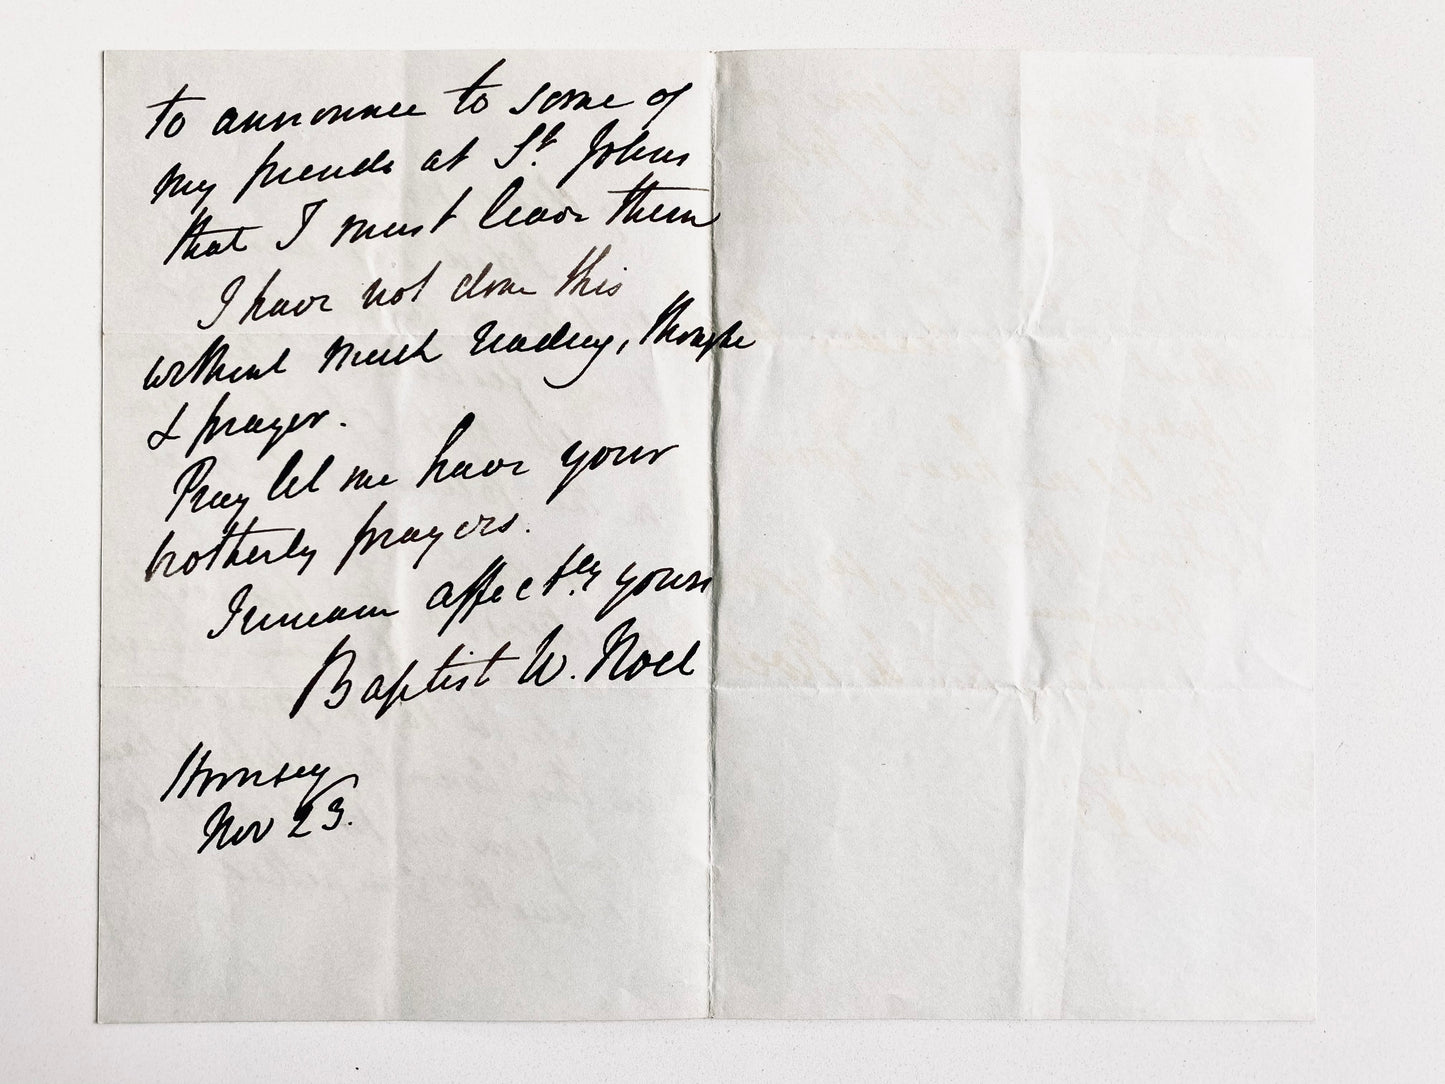 to announce to some of
my friends at St. Johns
that I must leave them
I have not done this
without much reading, thought
& prayer.
Pray let me have your
brotherly prayers.
I remain affectly yours
Baptist W. Noel
Hornsey
Nov 23.